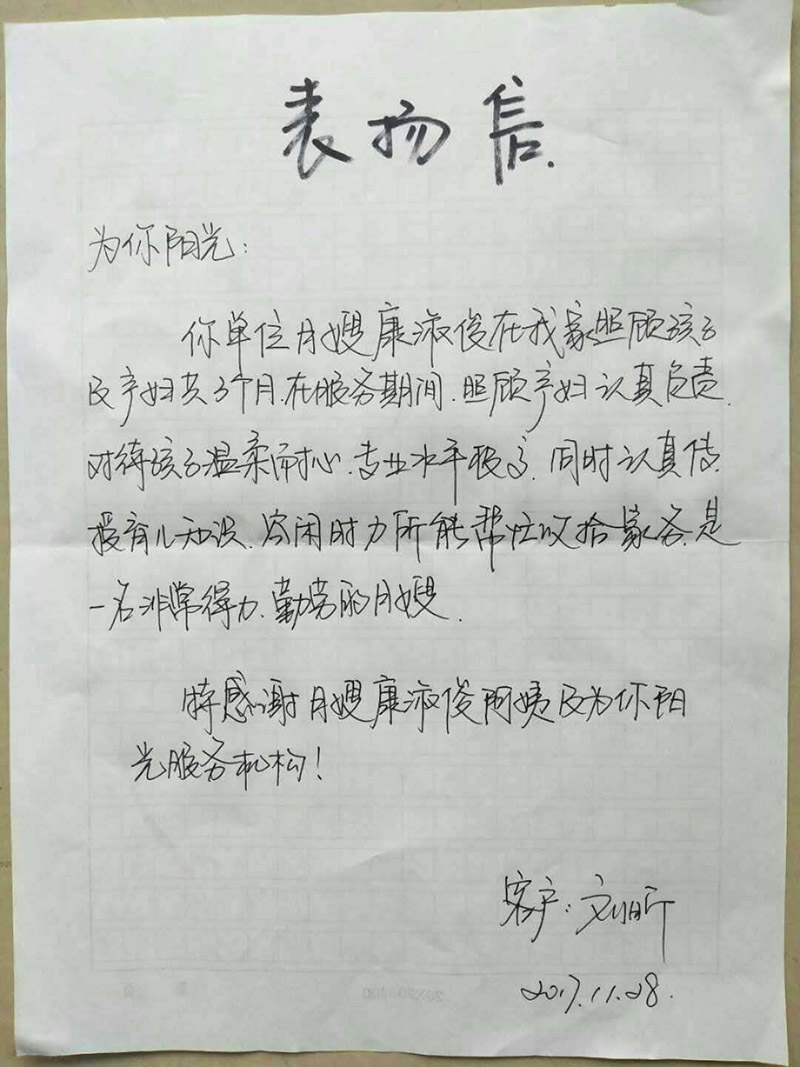 表扬信.
为你阳光:
你单位月嫂廉淑俊在我家照顾孩子
及产妇共3个月.在服务期间.照顾产妇认真负责.
对待孩子温柔耐心.专业水平极高.同时认真传
授育儿知识.空闲时力所能帮忙收拾家务.是
一名非常得力、勤劳的月嫂.
特感谢月嫂廉淑俊阿姨及为你阳
光服务机构!
客户:刘昕
2017.11.28.